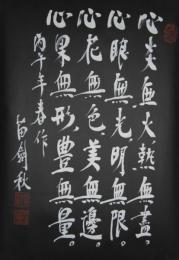 心炎無火熱無盡。
心眼無光明無限。
心花無色美無邊。
心果無形豐無量。
丙午年春作
苗劍秋